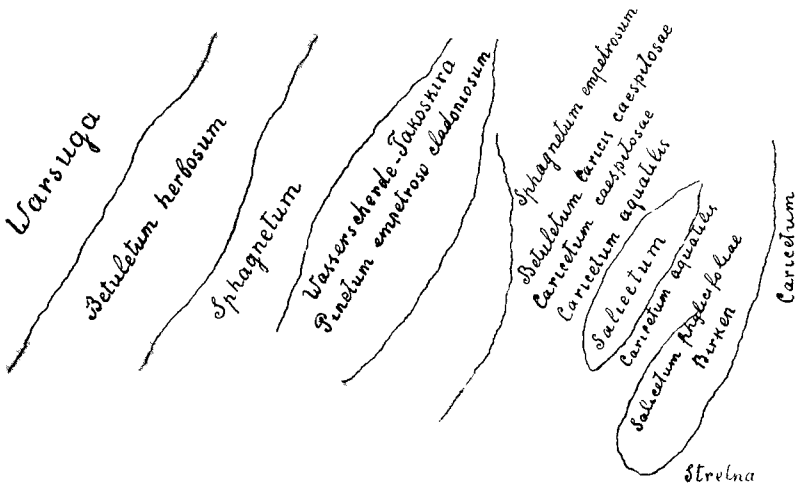 Warsuga
Betuletum herbosum
Sphagnetum
Wasserscheide-Jakoskira
Pinetum empetroso cladoniosum
Sphagnetum empetrosum
Betuletum Caricis caespitosae
Caricetum caespitosae
Caricetum aquatilis
Salicetum
Caricetum aquatilis
Salicetum phylicifoliae
Birken
Caricetum
Strelna